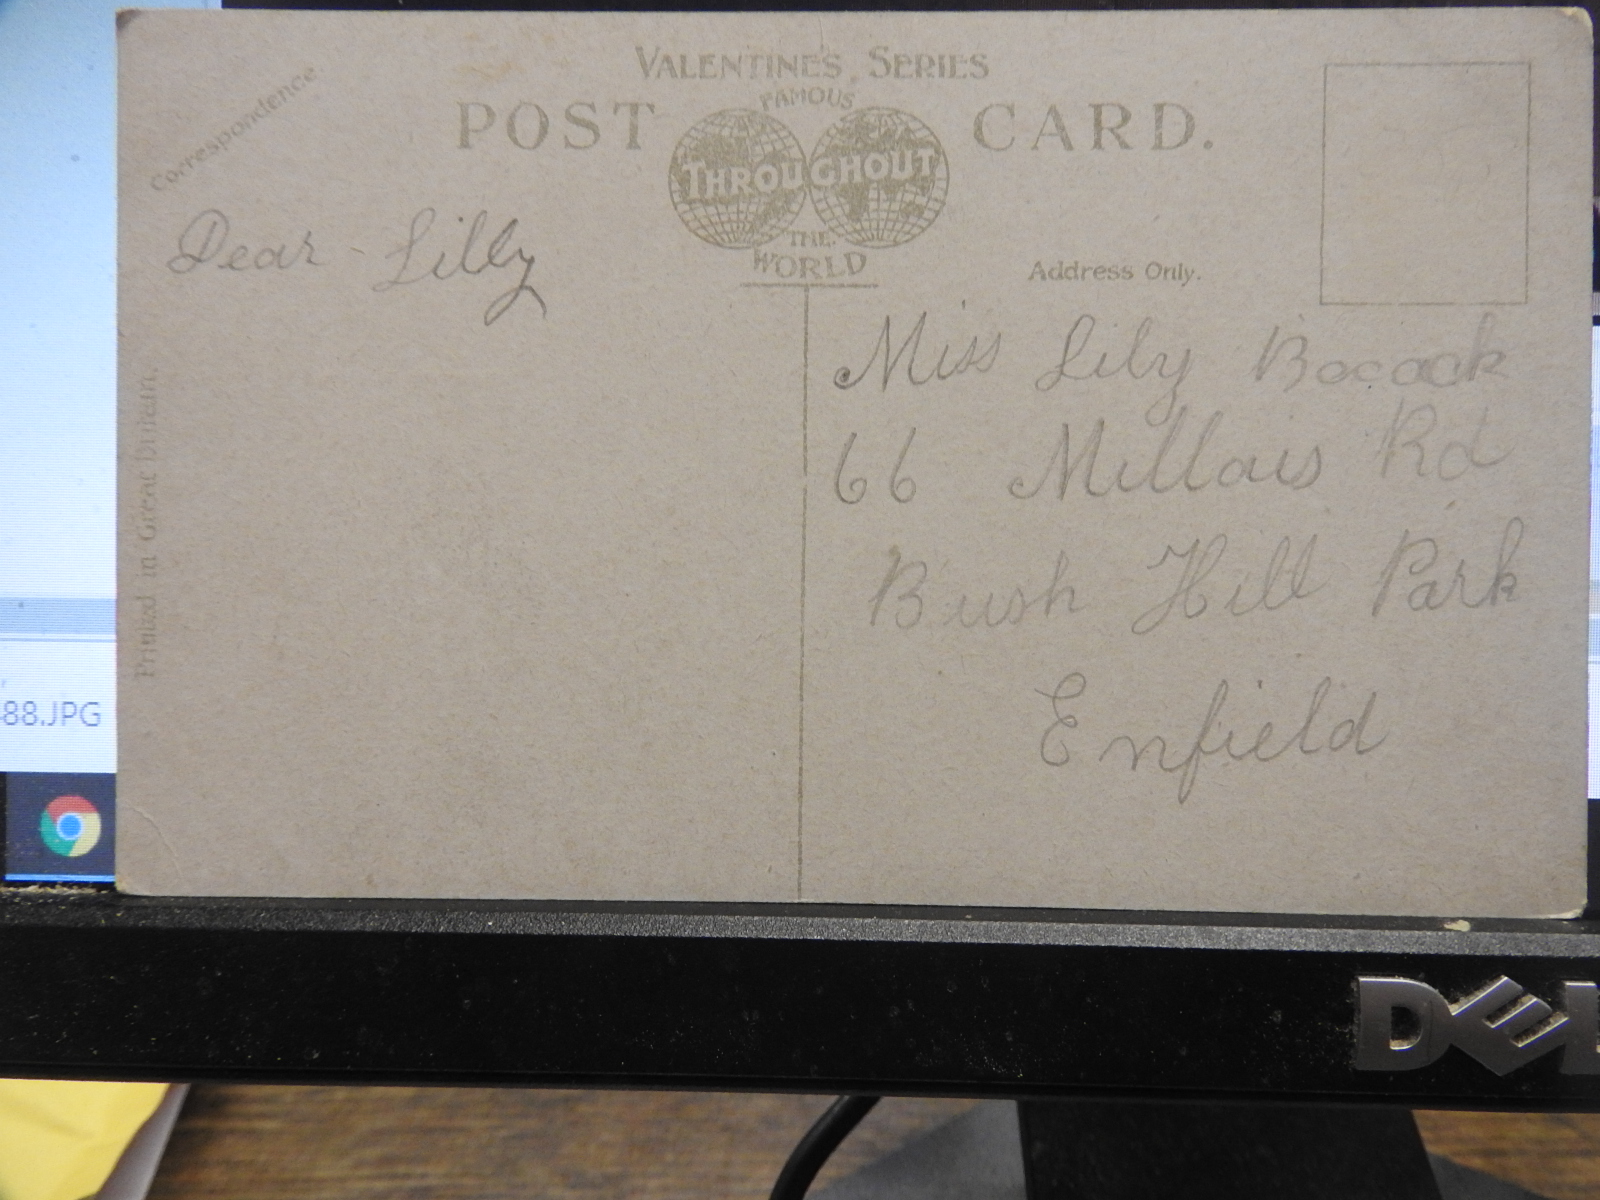 VALENTINE'S SERIES
FAMOUS
POST CARD.
THROUGHOUT
THE
WORLD
Correspondence.
Address Only.
Dear - Lilly
Miss Lily Bocock
66 Millais Rd
Bush Hill Park
Enfield
Printed in Great Britain.
88.JPG
DELL